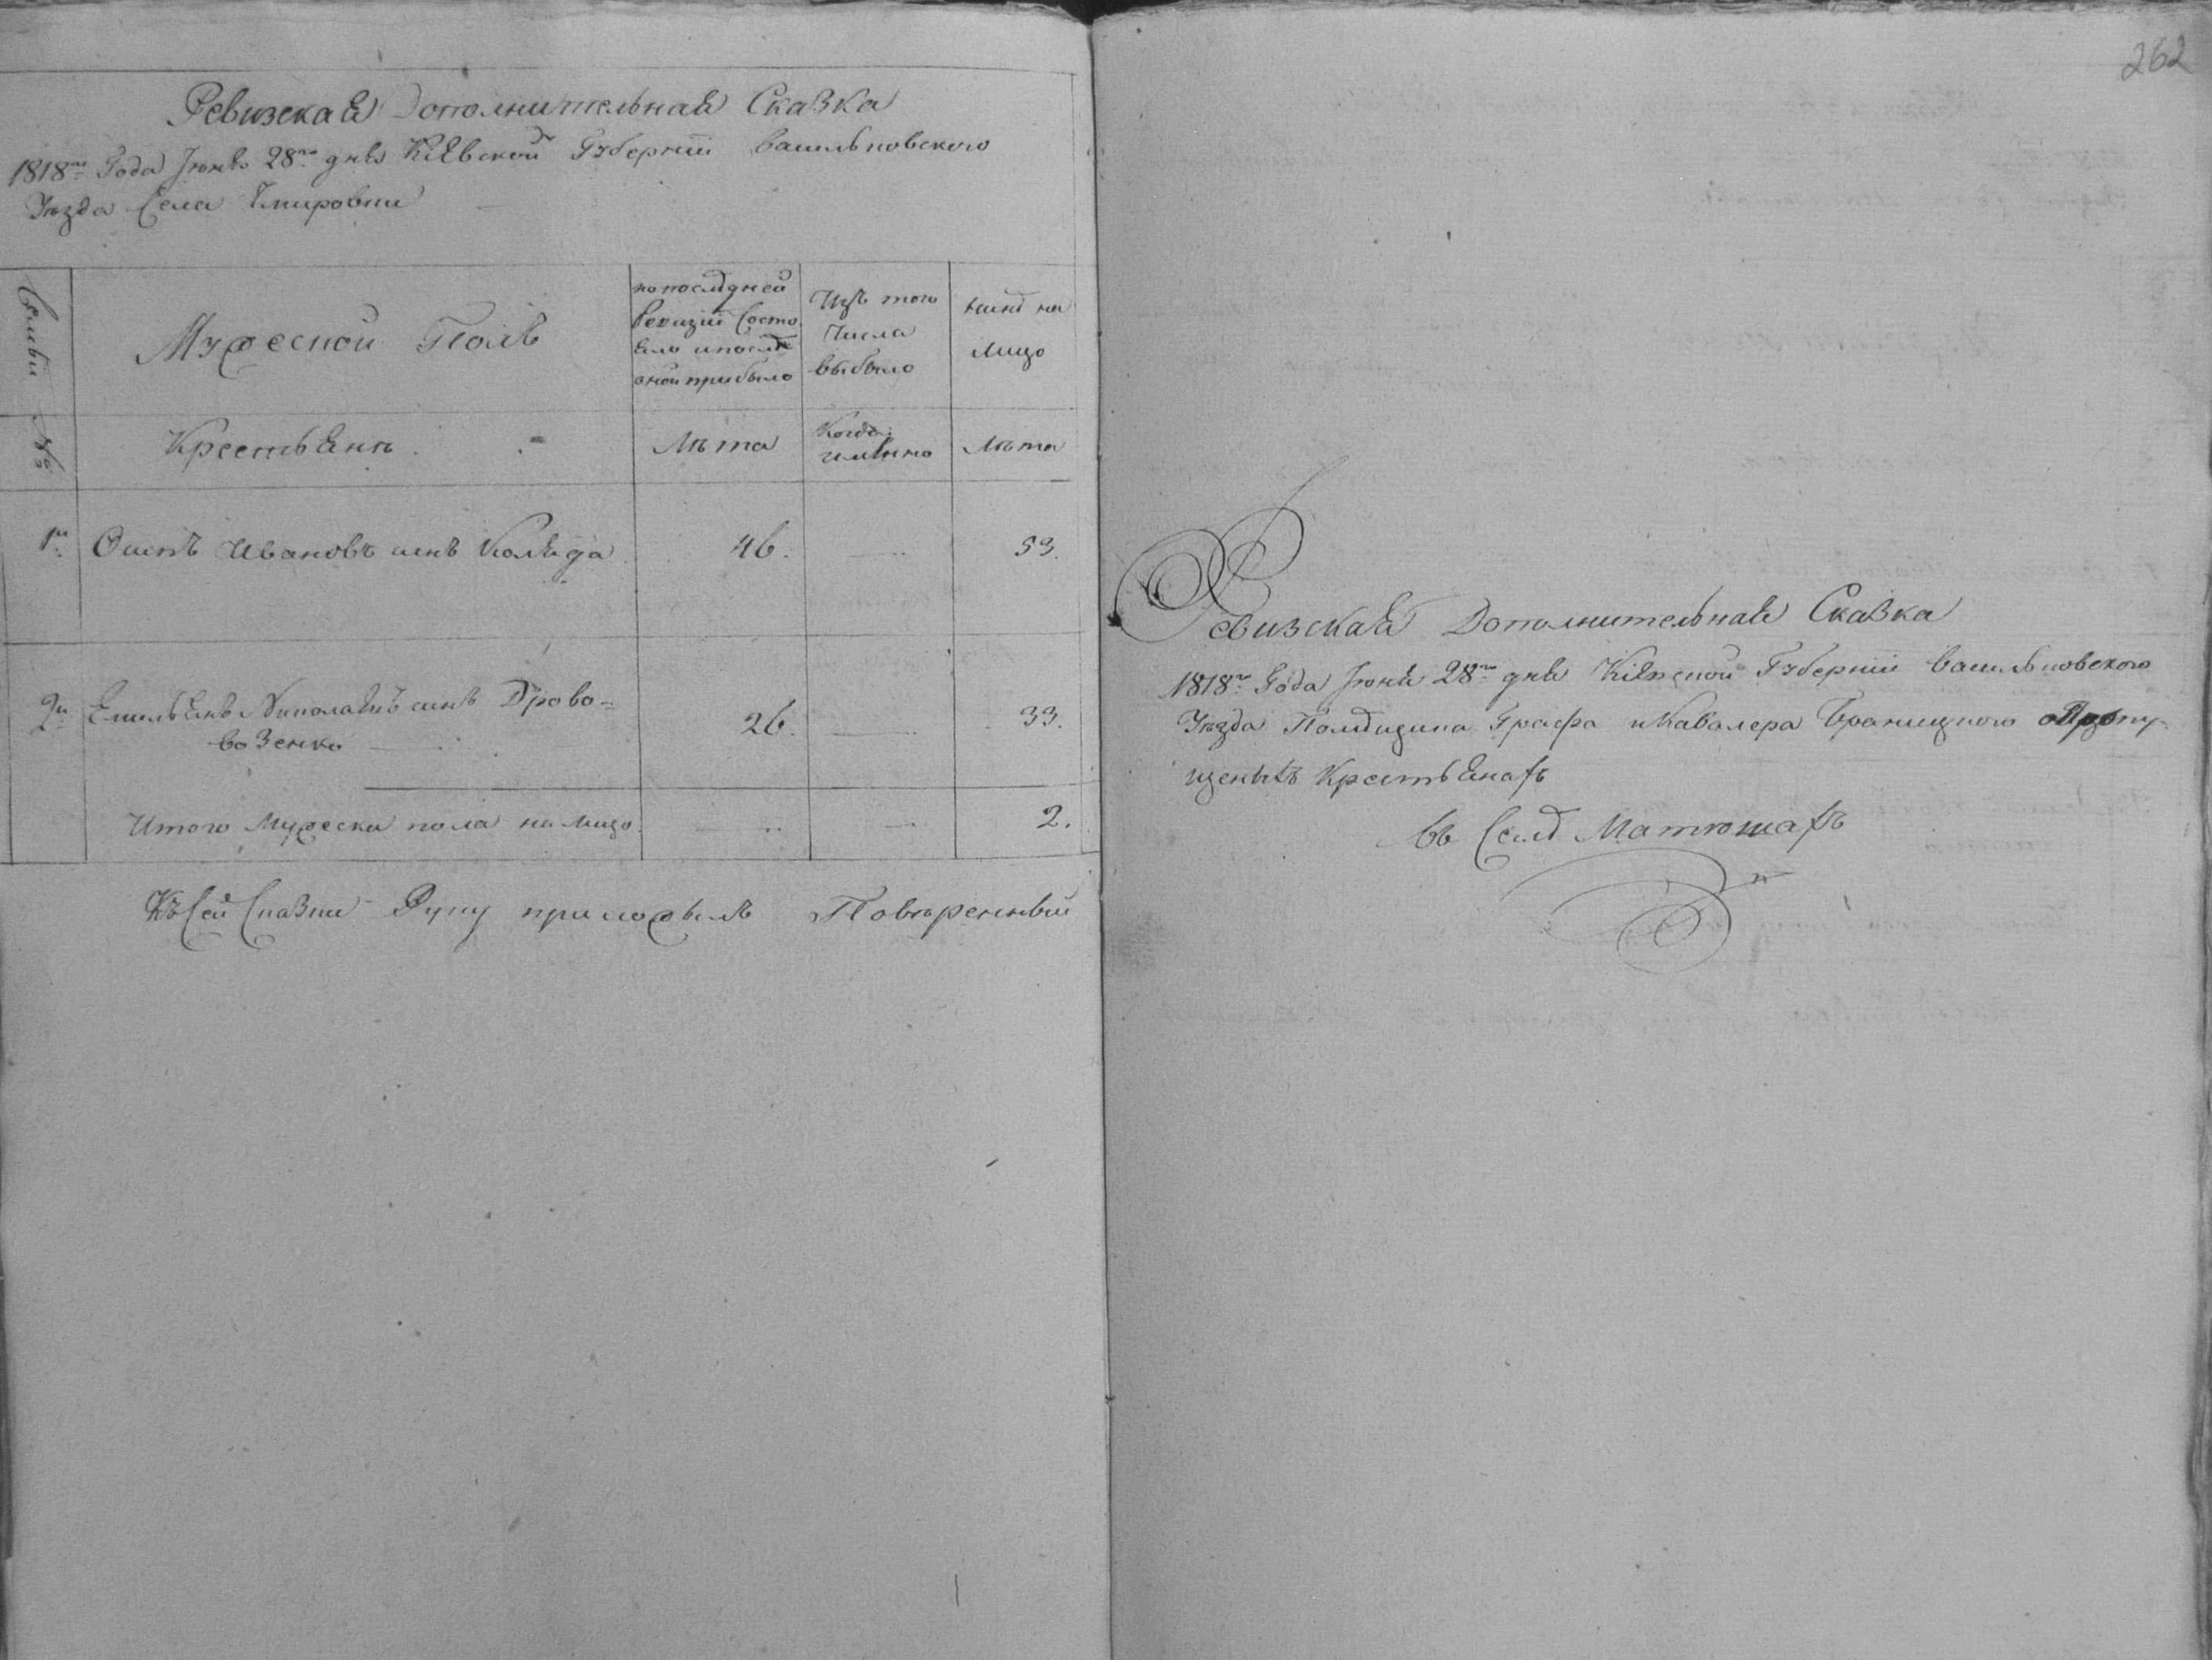 Ревизская Дополнительная Сказка
1818го Года Іюня 28го дня Кіевской Губерніи Васильковского
Уѣзда Села
Семьи №
Мужеской Полъ
по последней Ревизіи Состояло и после оной прибыло
Изъ того Числа выбыло
ныне на лицо
Крестьяне
Лѣта
Когда имянно
Лѣта
1й Осипъ Ивановъ синъ Коляда 46. 53.
2й Емильянъ Николаевъ синъ Дрово=
возенко 26. 33.
Итого Мужеска пола на лицо 2.
Къ Сей Сказки Руку приложилъ Повѣренный
262
Ревизская Дополнительная Сказка
1818го Года Іюня 28го дня Кіевской Губерніи Васильковского
Уѣзда Помещика Графа и Кавалера Браницкого о пропу-
щеныхъ Крестьянахъ
Въ Селе Матюшахъ